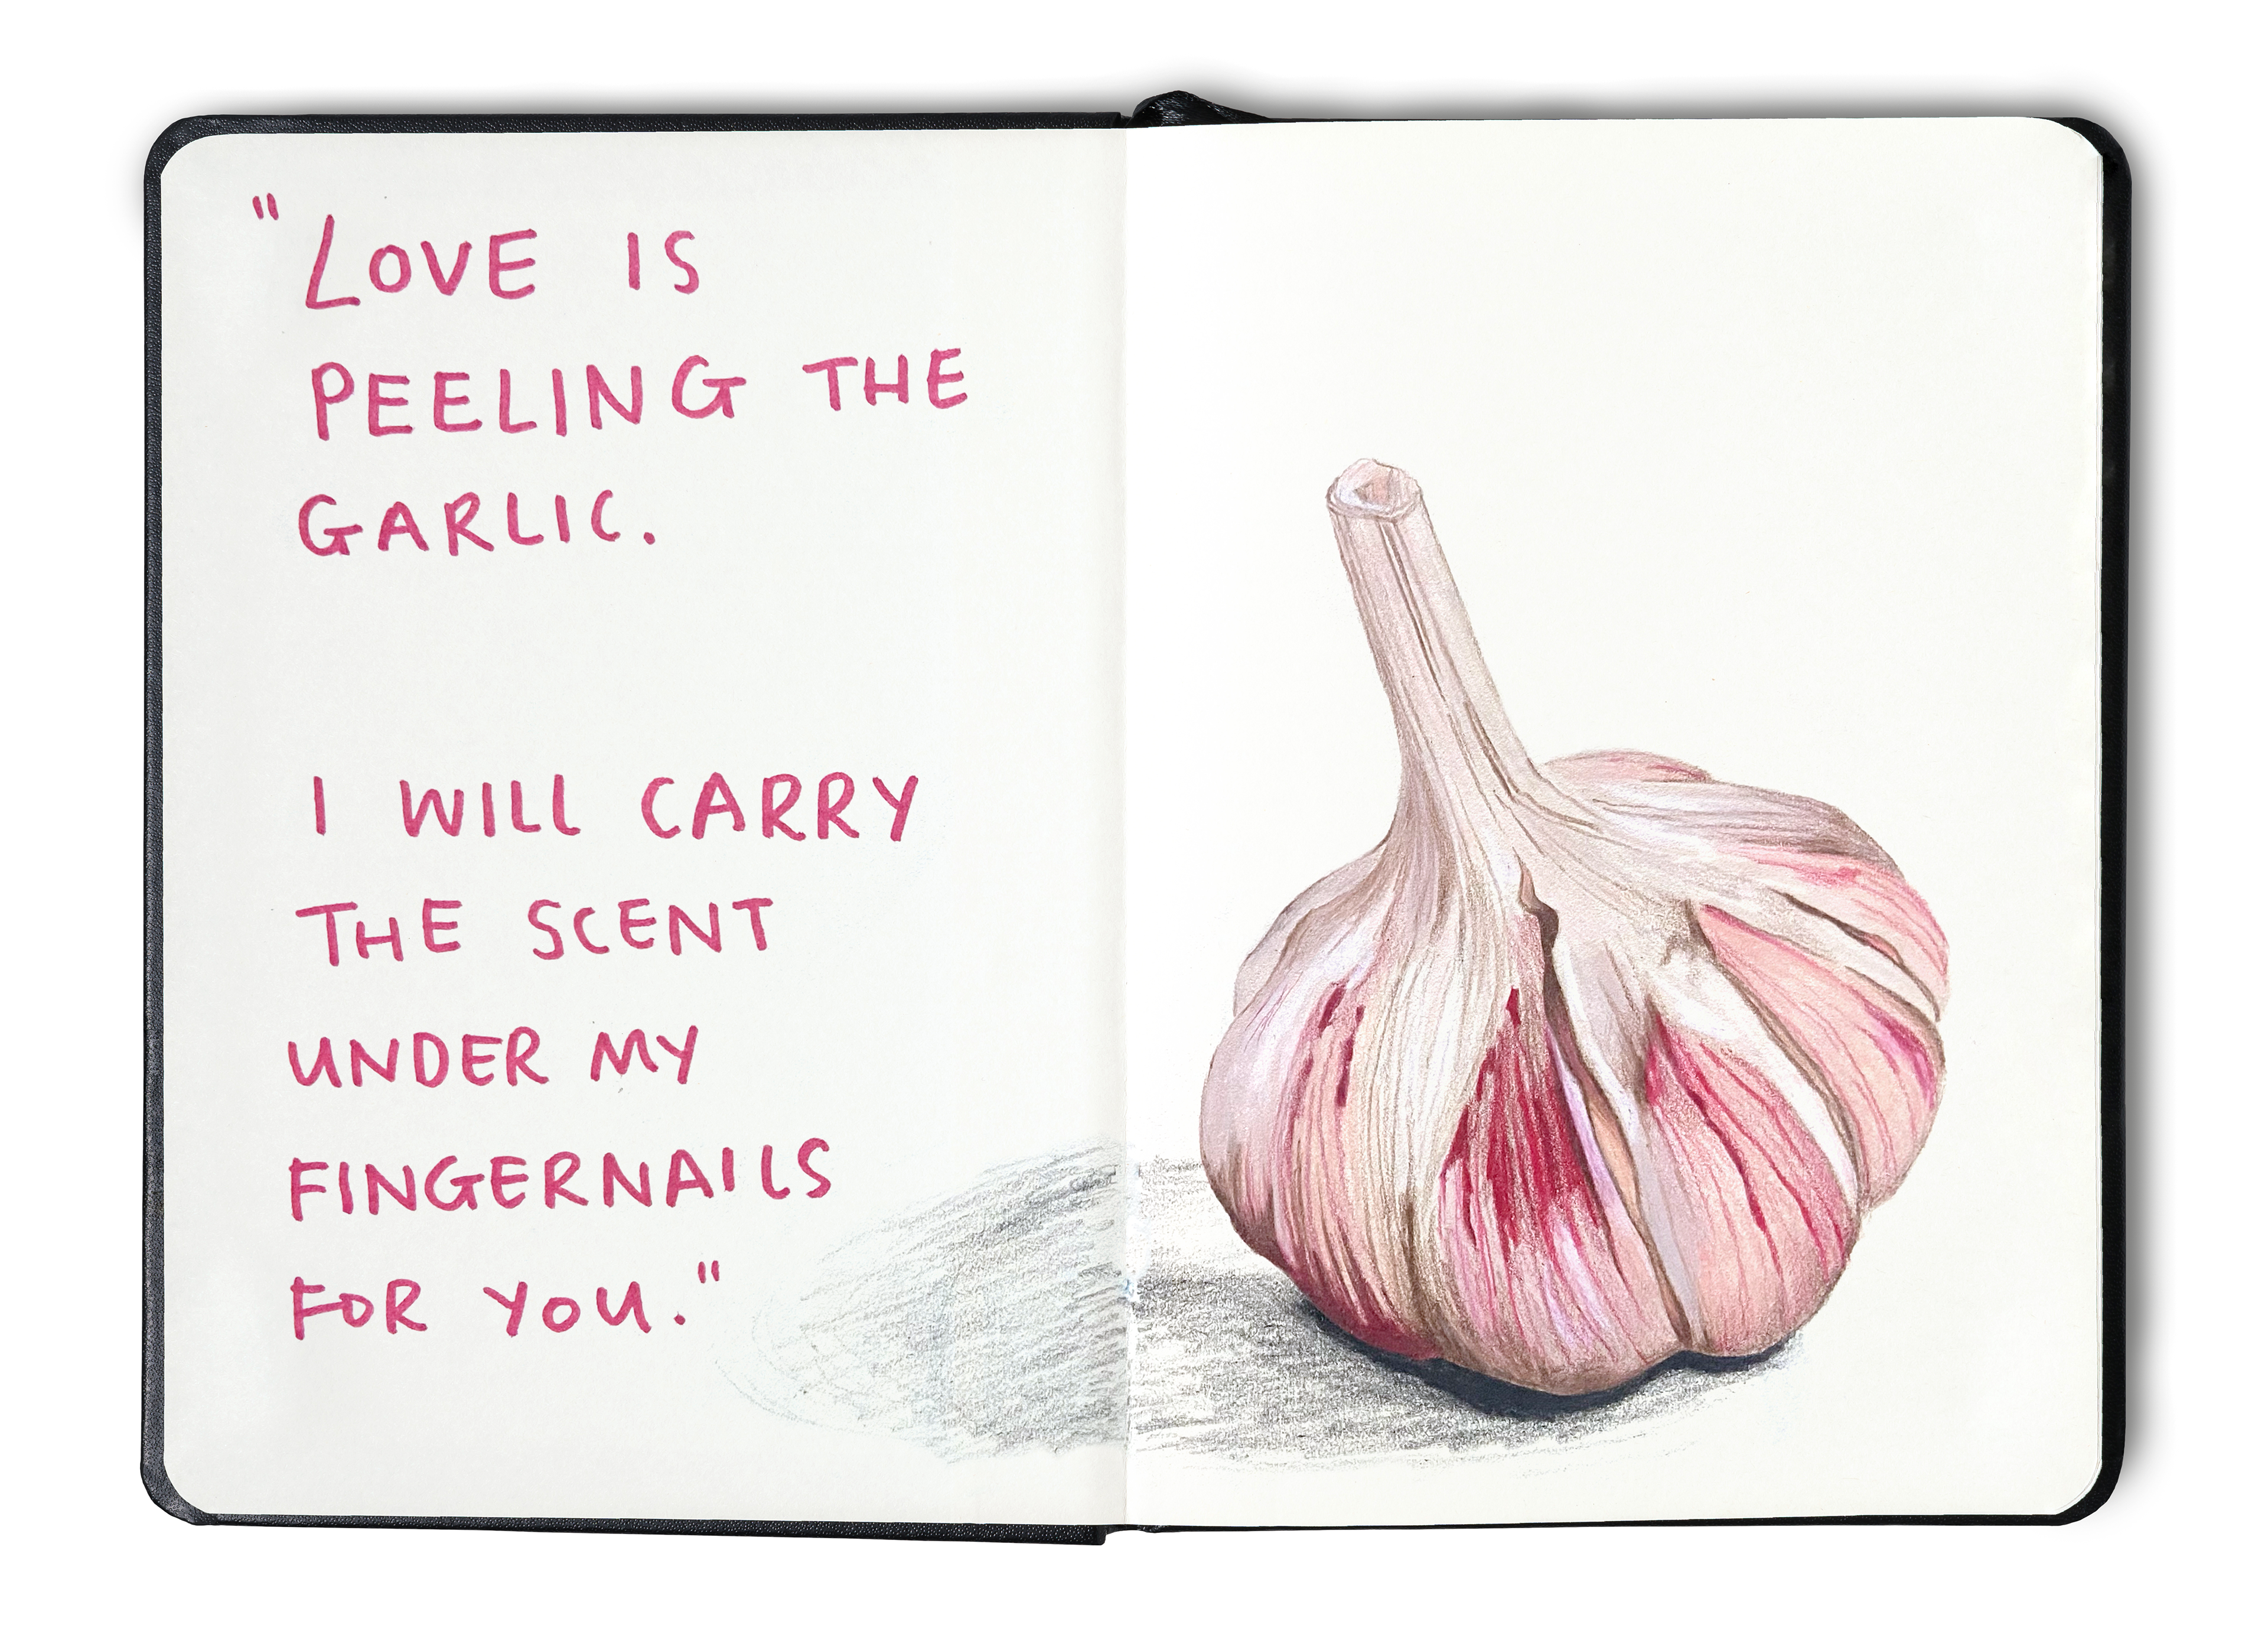 "LOVE IS
PEELING THE
GARLIC.
I WILL CARRY
THE SCENT
UNDER MY
FINGERNAILS
FOR YOU."